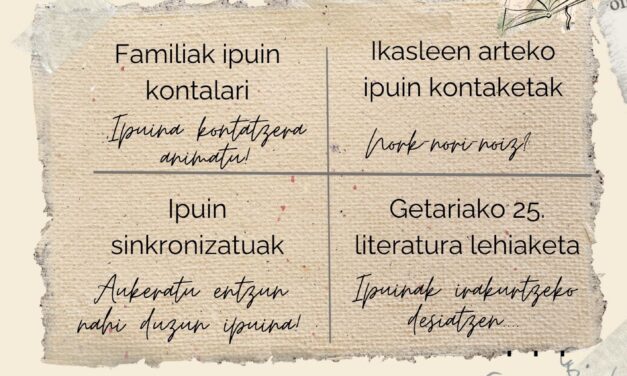 Familiak ipuin
kontalari
Ipuina kontatzera
animatu!
Ikasleen arteko
ipuin kontaketak
Nork-nori-noiz?
Ipuin
sinkronizatuak
Aukeratu entzun
nahi duzun ipuina!
Getariako 25.
literatura lehiaketa
Ipuinak irakurtzeko
desiatzen....